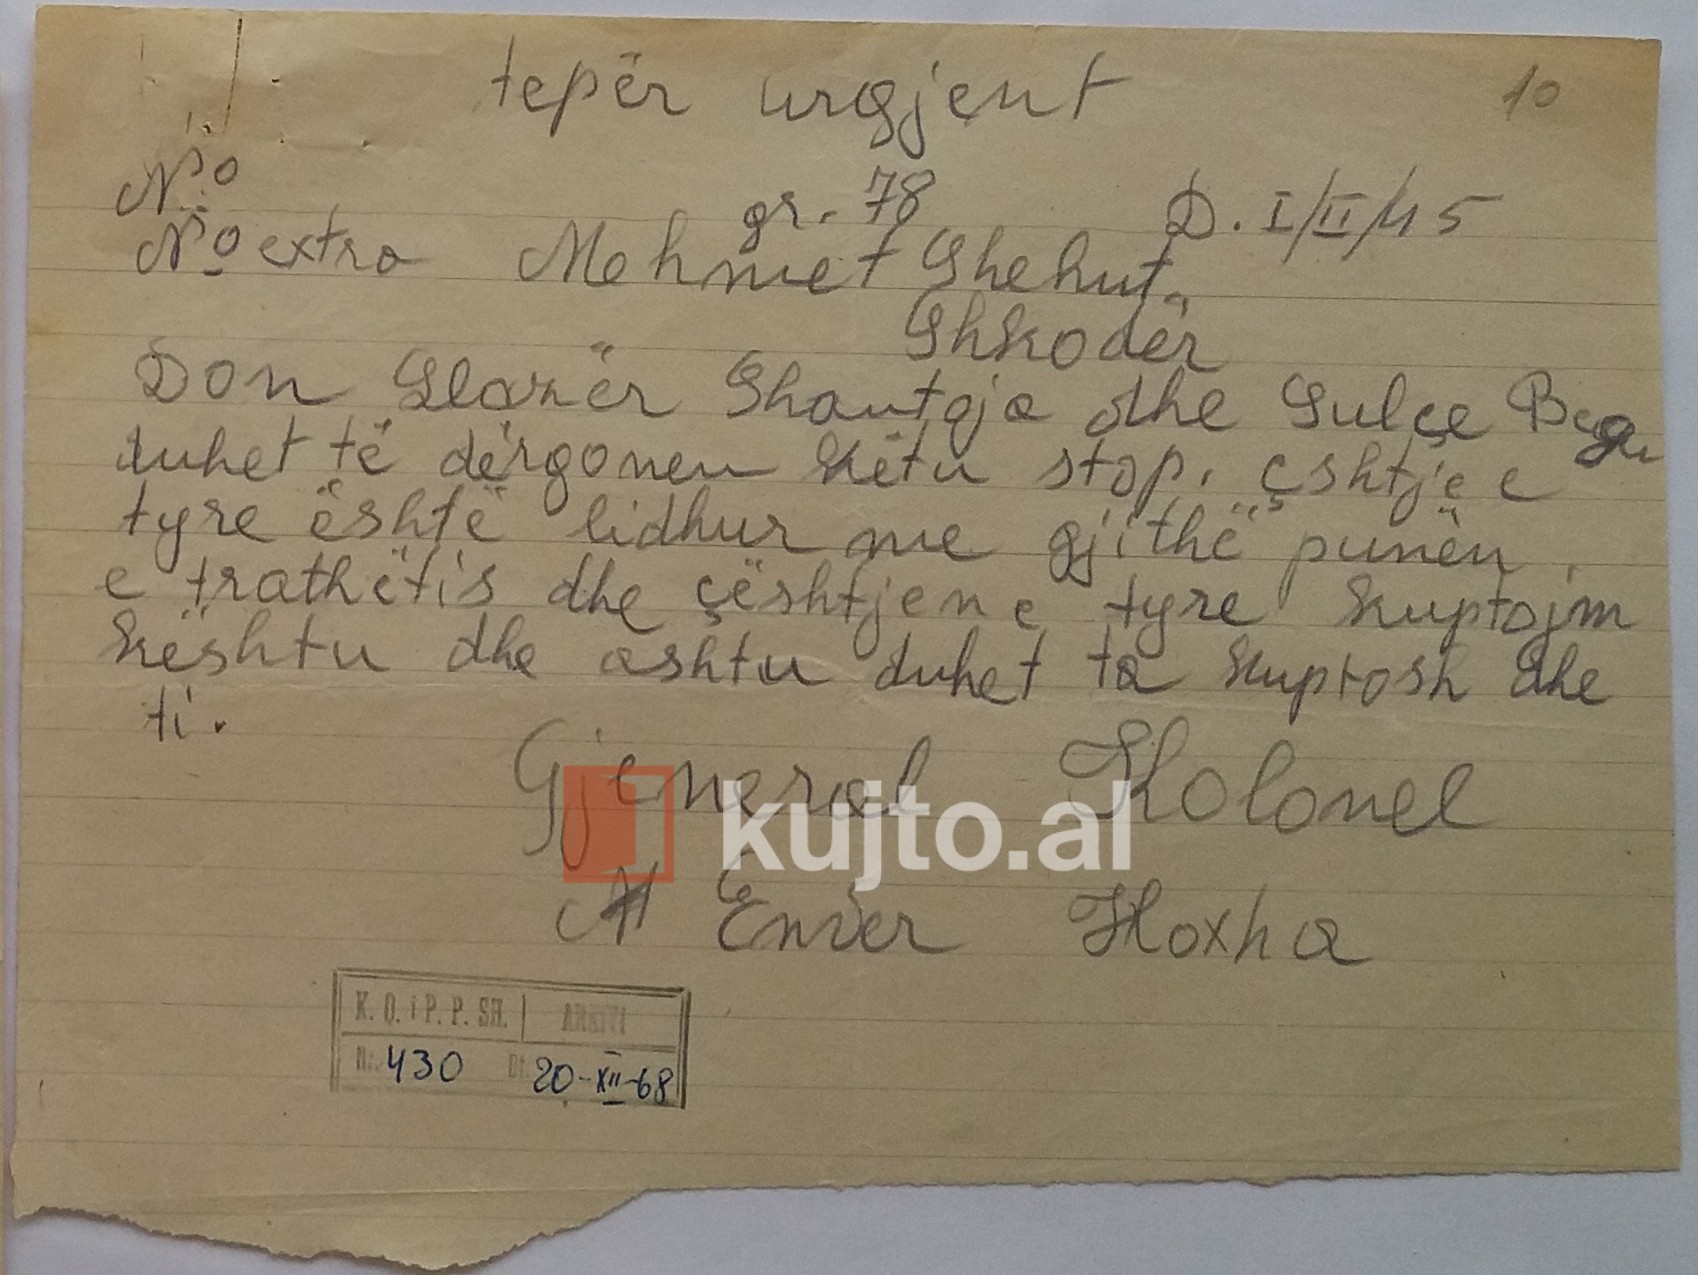 tepër urgjent
10
No
gr. 78 D. I/II/45
No extra Mehmet Shehut
Shkodër
Don Llazër Shantoja dhe Sulçe Begu
duhet të dërgonen këtu stop. çshtje e
tyre është lidhur me gjithë punën
e trathëtis dhe çështjen e tyre kuptojm
kështu dhe ashtu duhet ta kuptosh dhe
ti.
Gjeneral Kolonel
kujto.al
Enver Hoxha
K. Q. i P. P. SH. ARKIVI
Nr. 430 Dt. 20-XII-68